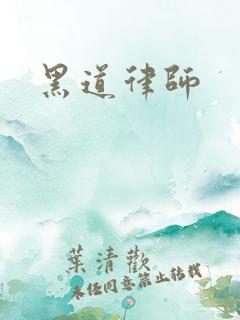 黑道律師
葉清歡
未经同意禁止转载